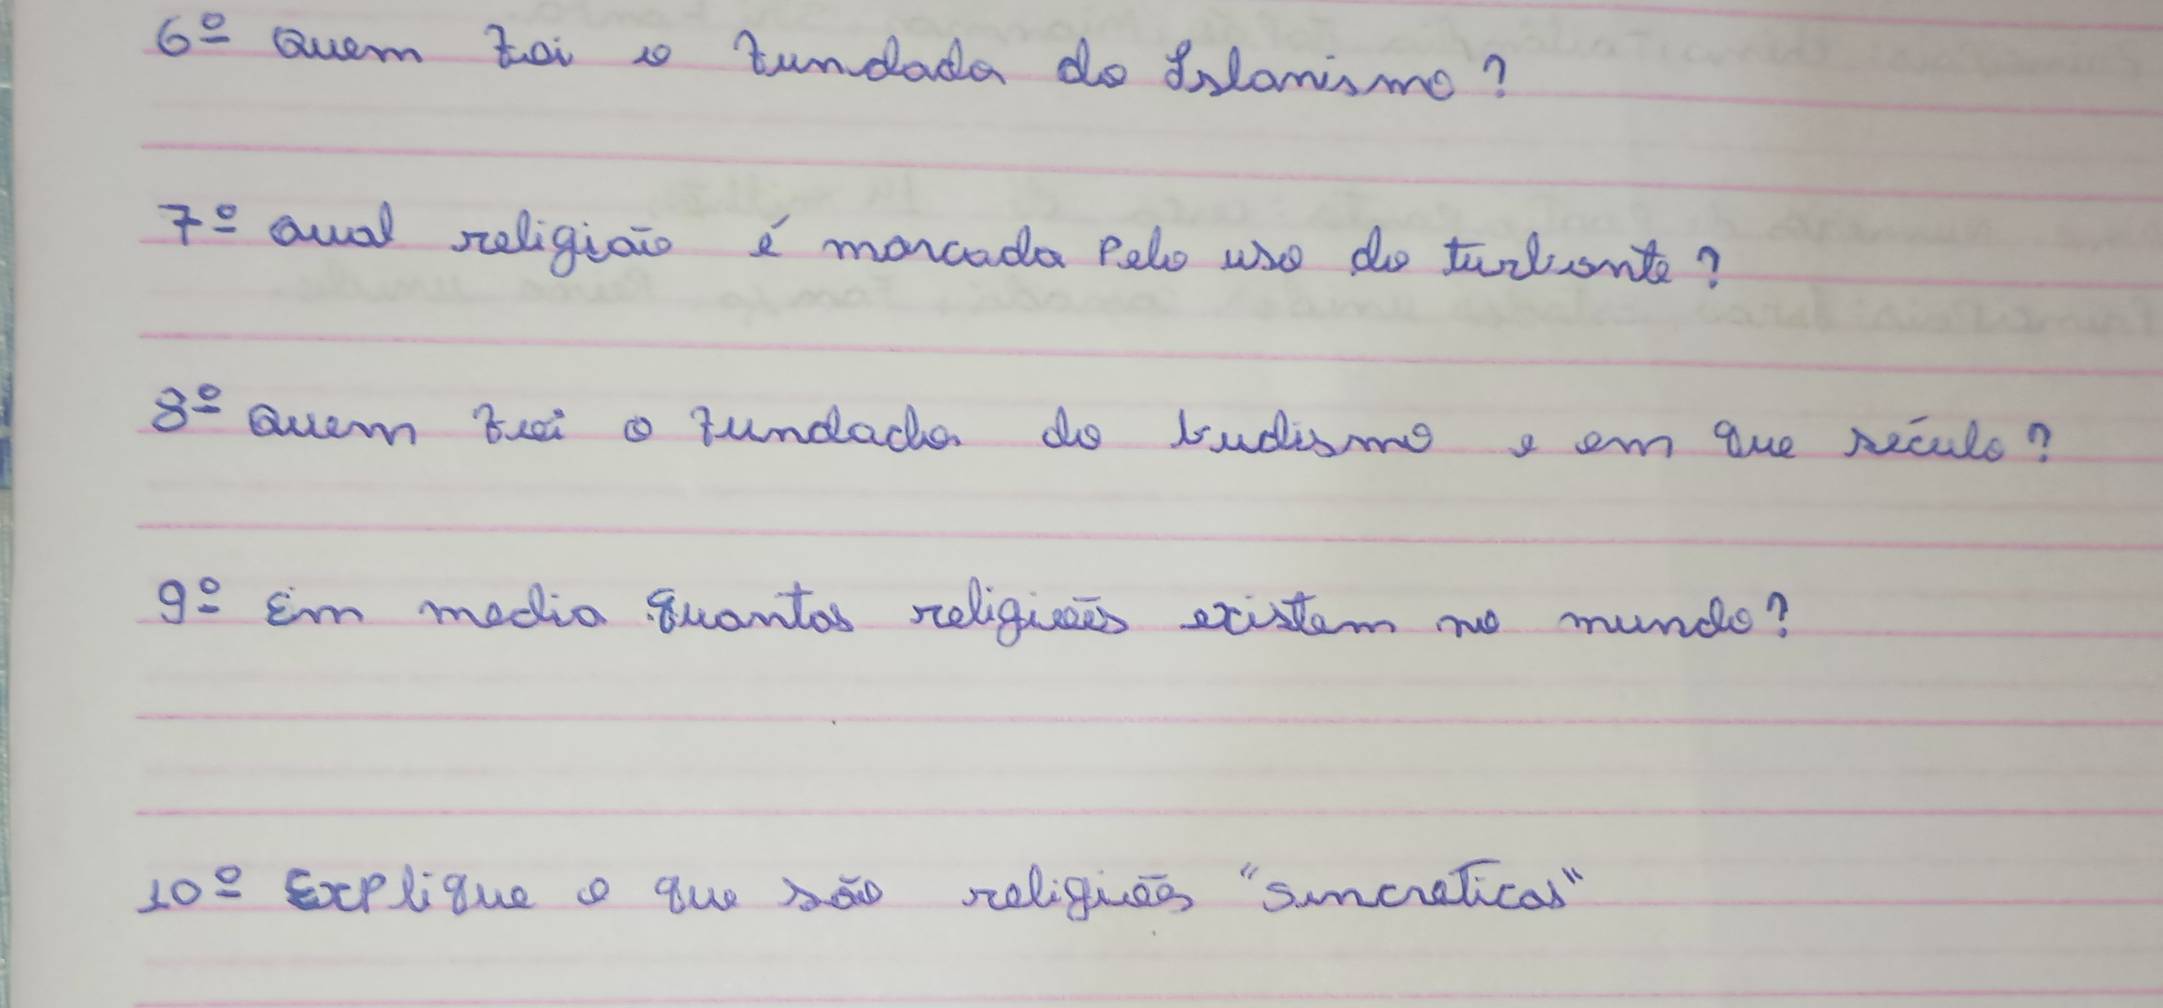 6º Quem foi o fundada do Islamismo?
7º Qual religião é marcada Pelo uso do turbante?
8º Quem foi o fundada do budismo e em que século?
9º Em media quantas religiões existem no mundo?
10º Explique o que são religiões "sincreticas"